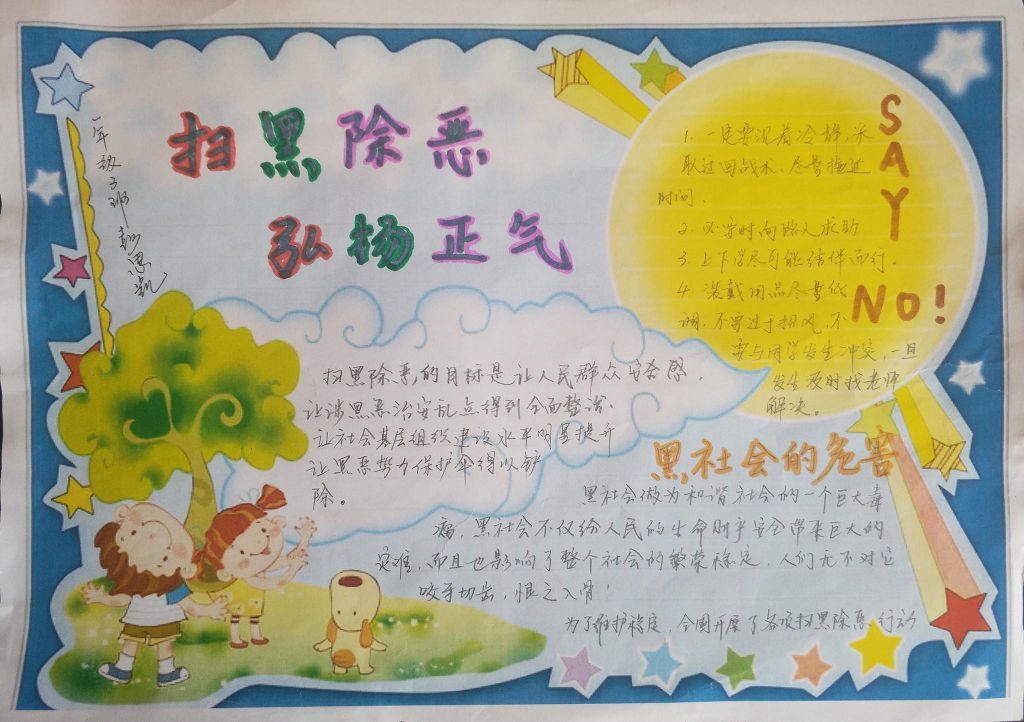 扫黑除恶
弘扬正气
一年级3班
SAY
NO!
1. 一定要沉着冷静,采
取迂回战术,尽量拖延
时间。
2. 必要时向路人求助
3. 上下学尽可能结伴而行。
4. 装戴用品尽量低
调,不要过于招风,不
要与同学发生冲突,一旦
发生及时找老师
解决。
扫黑除恶的目标是让人民群众安全感,
让涉黑恶治安乱点得到全面整治,
让社会基层组织建设水平明显提升
让黑恶势力保护伞得以铲
除。
黑社会的危害
黑社会做为和谐社会的一个巨大毒
瘤,黑社会不仅给人民的生命财产安全带来巨大的
灾难,而且也影响了整个社会的繁荣稳定,人们无不对它
咬牙切齿,恨之入骨!
为了维护稳定,全国开展了各项扫黑除恶行动